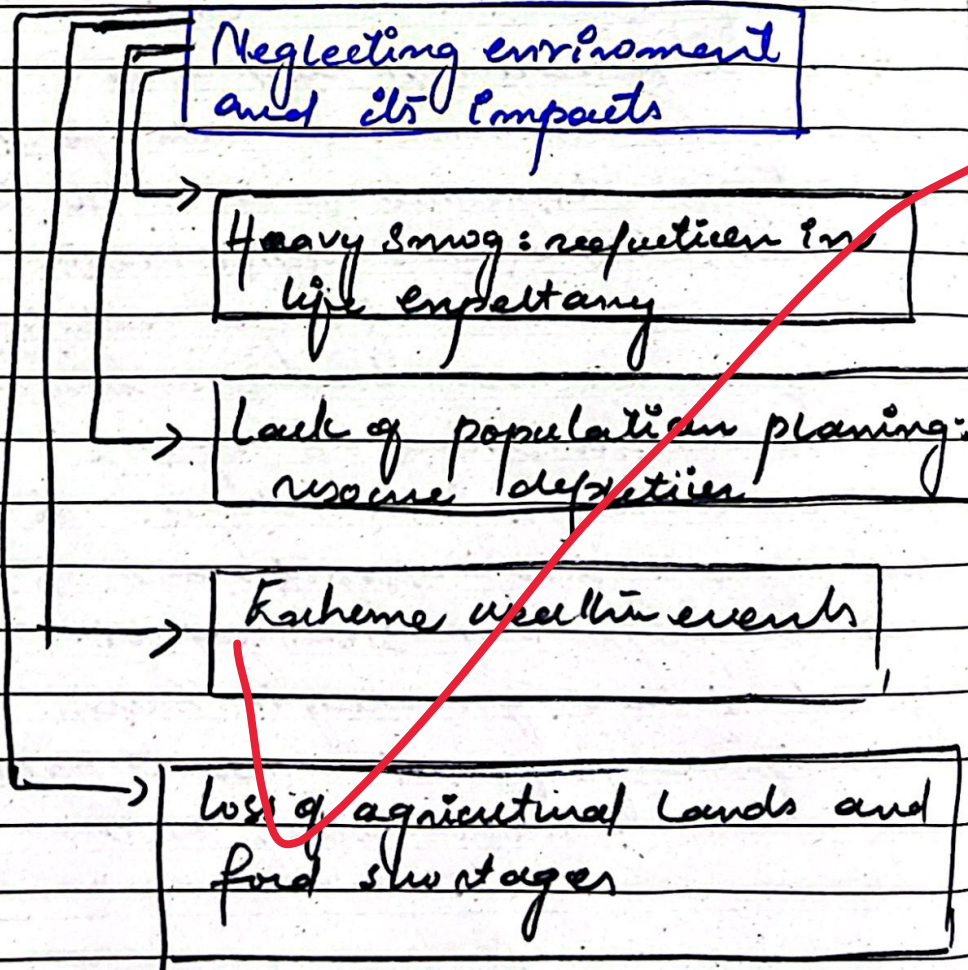 Neglecting enviroment
and its impacts
Heavy smog: reduction in
life expectancy
Lack of population planing:
resourse depletion
Extreme weather events
Loss of agricultural lands and
food shortages